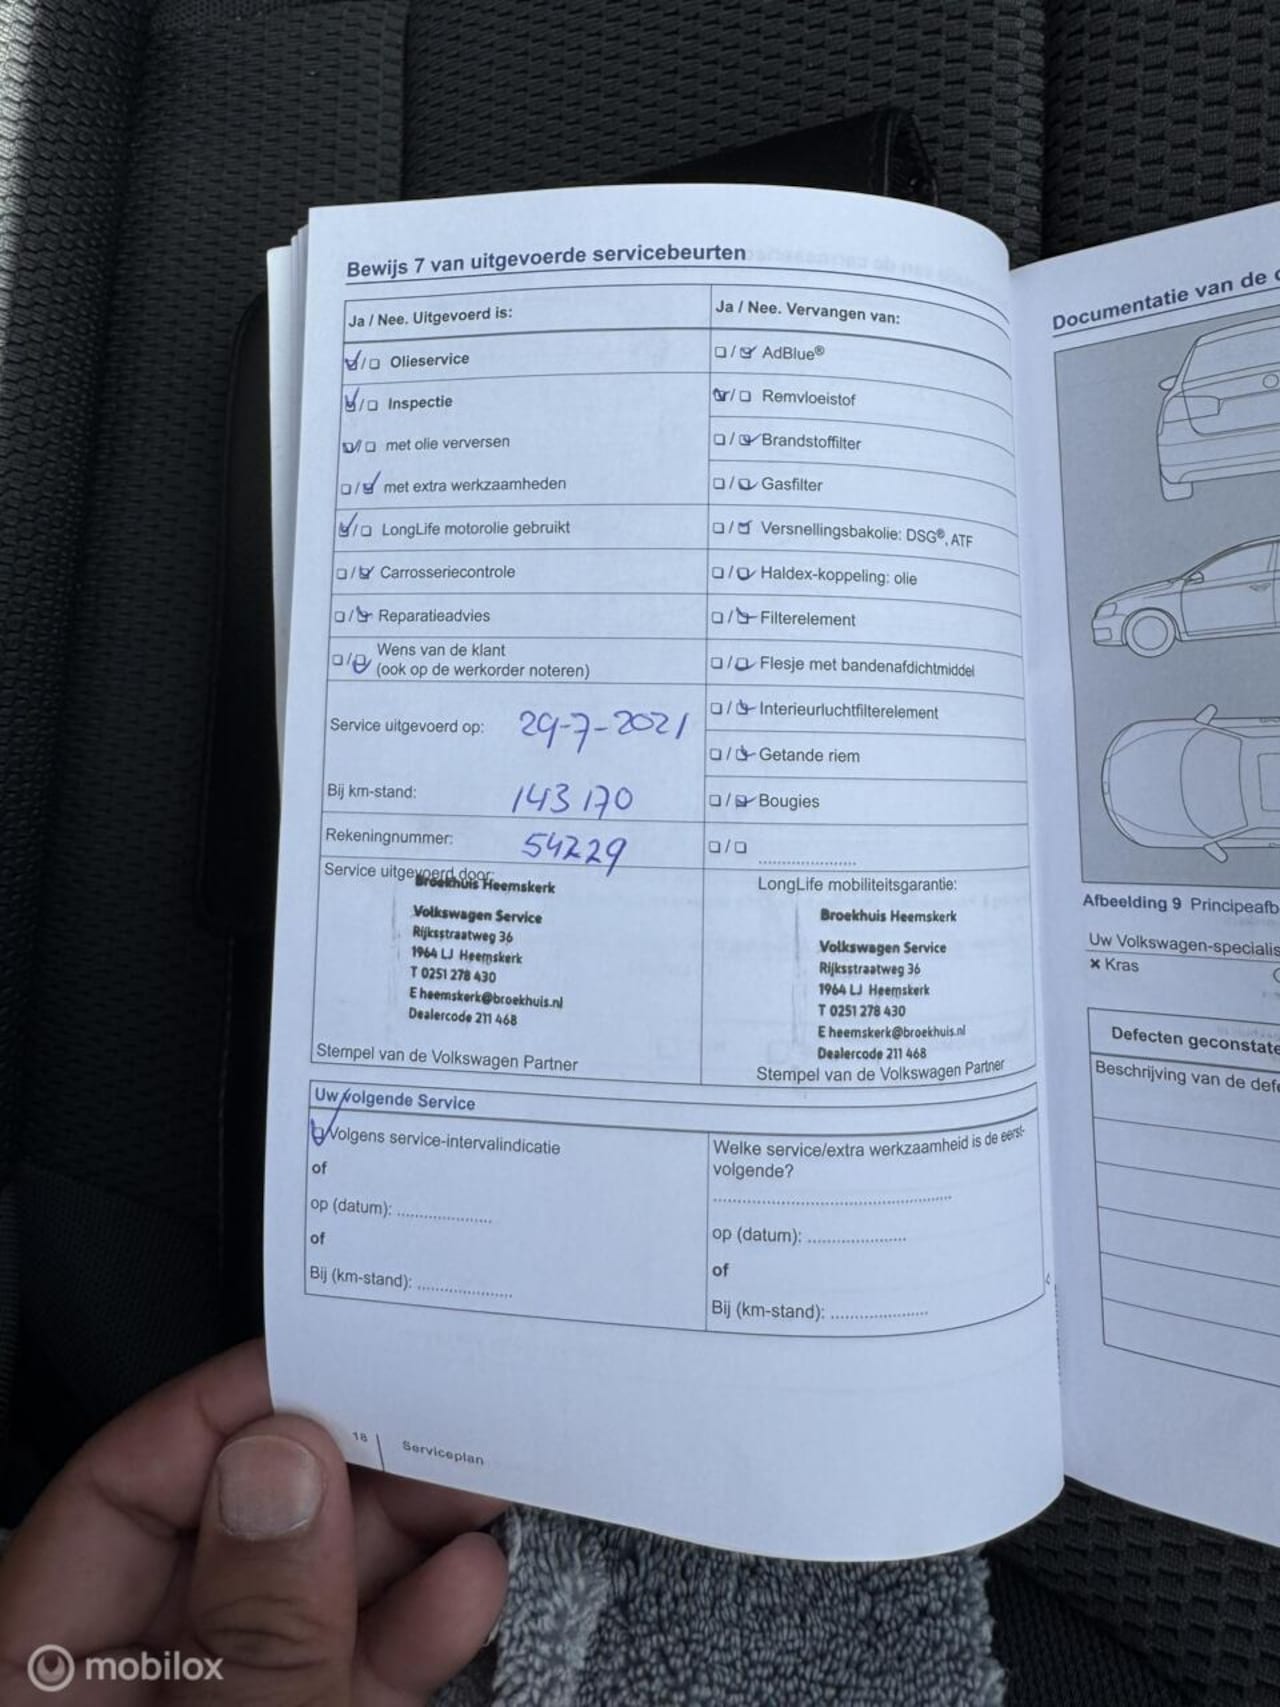 Bewijs 7 van uitgevoerde servicebeurten
Ja / Nee. Uitgevoerd is:
☑/☐ Olieservice
☑/☐ Inspectie
☑/☐ met olie verversen
☐/☑ met extra werkzaamheden
☑/☐ LongLife motorolie gebruikt
☐/☑ Carrosseriecontrole
☐/☑ Reparatieadvies
☐/☑ Wens van de klant
(ook op de werkorder noteren)
Service uitgevoerd op: 29-7-2021
Bij km-stand: 143170
Rekeningnummer: 54229
Service uitgevoerd door:
Broekhuis Heemskerk
Volkswagen Service
Rijksstraatweg 36
1964 LJ Heemskerk
T 0251 278 430
E heemskerk@broekhuis.nl
Dealercode 211 468
Stempel van de Volkswagen Partner
Ja / Nee. Vervangen van:
☐/☑ AdBlue®
☑/☐ Remvloeistof
☐/☑ Brandstoffilter
☐/☑ Gasfilter
☐/☑ Versnellingsbakolie: DSG®, ATF
☐/☑ Haldex-koppeling: olie
☐/☑ Filterelement
☐/☑ Flesje met bandenafdichtmiddel
☐/☑ Interieurluchtfilterelement
☐/☑ Getande riem
☐/☑ Bougies
☐/☐ ......................
LongLife mobiliteitsgarantie:
Broekhuis Heemskerk
Volkswagen Service
Rijksstraatweg 36
1964 LJ Heemskerk
T 0251 278 430
E heemskerk@broekhuis.nl
Dealercode 211 468
Stempel van de Volkswagen Partner
Uw volgende Service
☑ Volgens service-intervalindicatie
of
op (datum): .....................
of
Bij (km-stand): .....................
Welke service/extra werkzaamheid is de eerst-
volgende?
.....................................................
op (datum): .....................
of
Bij (km-stand): .....................
18 Serviceplan
Documentatie van de
Afbeelding 9 Principeafb
Uw Volkswagen-specialis
× Kras
Defecten geconstate
Beschrijving van de defe
mobilox